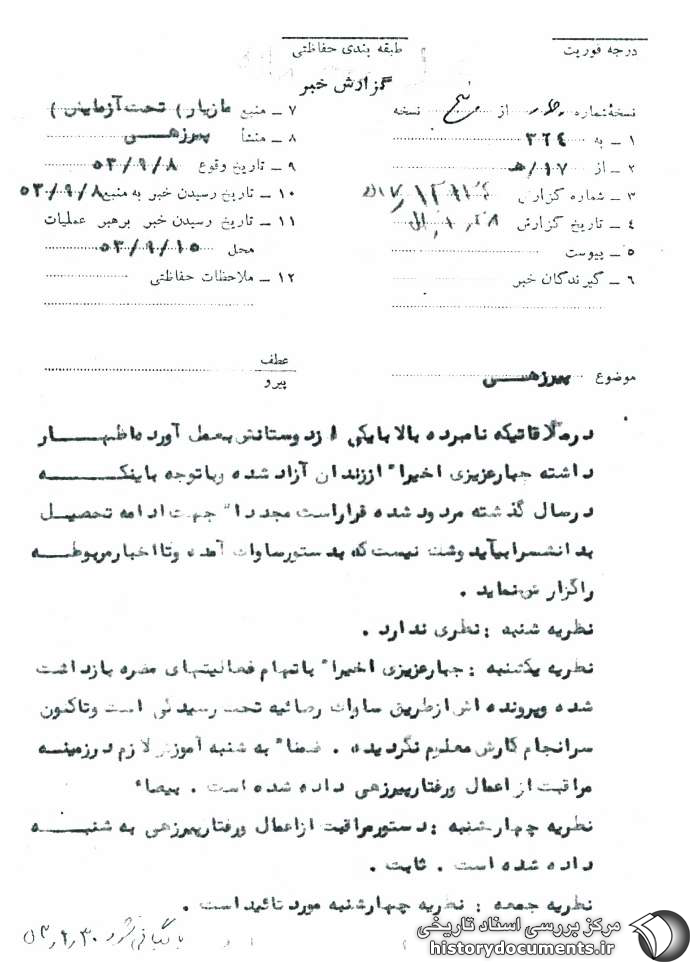 درجه فوریت
طبقه بندی حفاظتی
گزارش خبر
نسخهٔ شماره از پنج نسخه
۱ ـ به ۳۲۴
۲ ـ از ۱۷/هـ
۳ ـ شماره گزارش
۴ ـ تاریخ گزارش
۵ ـ پیوست
۶ ـ گیرندگان خبر
۷ ـ منبع مازیار (تحت آزمایش)
۸ ـ منشأ پیرزهی
۹ ـ تاریخ وقوع ۵۳/۹/۸
۱۰ ـ تاریخ رسیدن خبر به منبع ۵۳/۹/۸
۱۱ ـ تاریخ رسیدن خبر برهبر عملیات
محل ۵۳/۹/۱۵
۱۲ ـ ملاحظات حفاظتی
موضوع پیرزهی
عطف
پیرو
درملاقاتیکه نامبرده بالا بایکی از دوستانش بعمل آورده اظهار
داشته جهارعزیزی اخیرا" اززندان آزاد شده وباتوجه باینکه
درسال گذشته مردود شده قراراست مجددا" جهت ادامه تحصیل
بدانشسرابیاید وشت نیست که بدستورساوات آمده وتا اخبارمربوطه
راگزارش نماید .
نظریه شنبه : نظری ندارد .
نظریه یکشنبه : جهارعزیزی اخیرا" باتهام فعالیتهای مضره بازداشت
شده وپرونده اش ازطریق ساوات رضائیه تحت رسیدگی است وتاکنون
سرانجام کارش معلوم نگردیده . ضمنا" به شنبه آموزش لازم درزمینه
مراقبت از اعمال ورفتارپیرزهی داده شده است . بیضاء
نظریه چهارشنبه : دستورمراقبت ازاعمال ورفتارپیرزهی به شنبه
داده شده است . ثابت .
نظریه جمعه : نظریه چهارشنبه مورد تائید است .
بایگانی شود ۵۳/۹/۳۰
مرکز بررسی اسناد تاریخی
historydocuments.ir